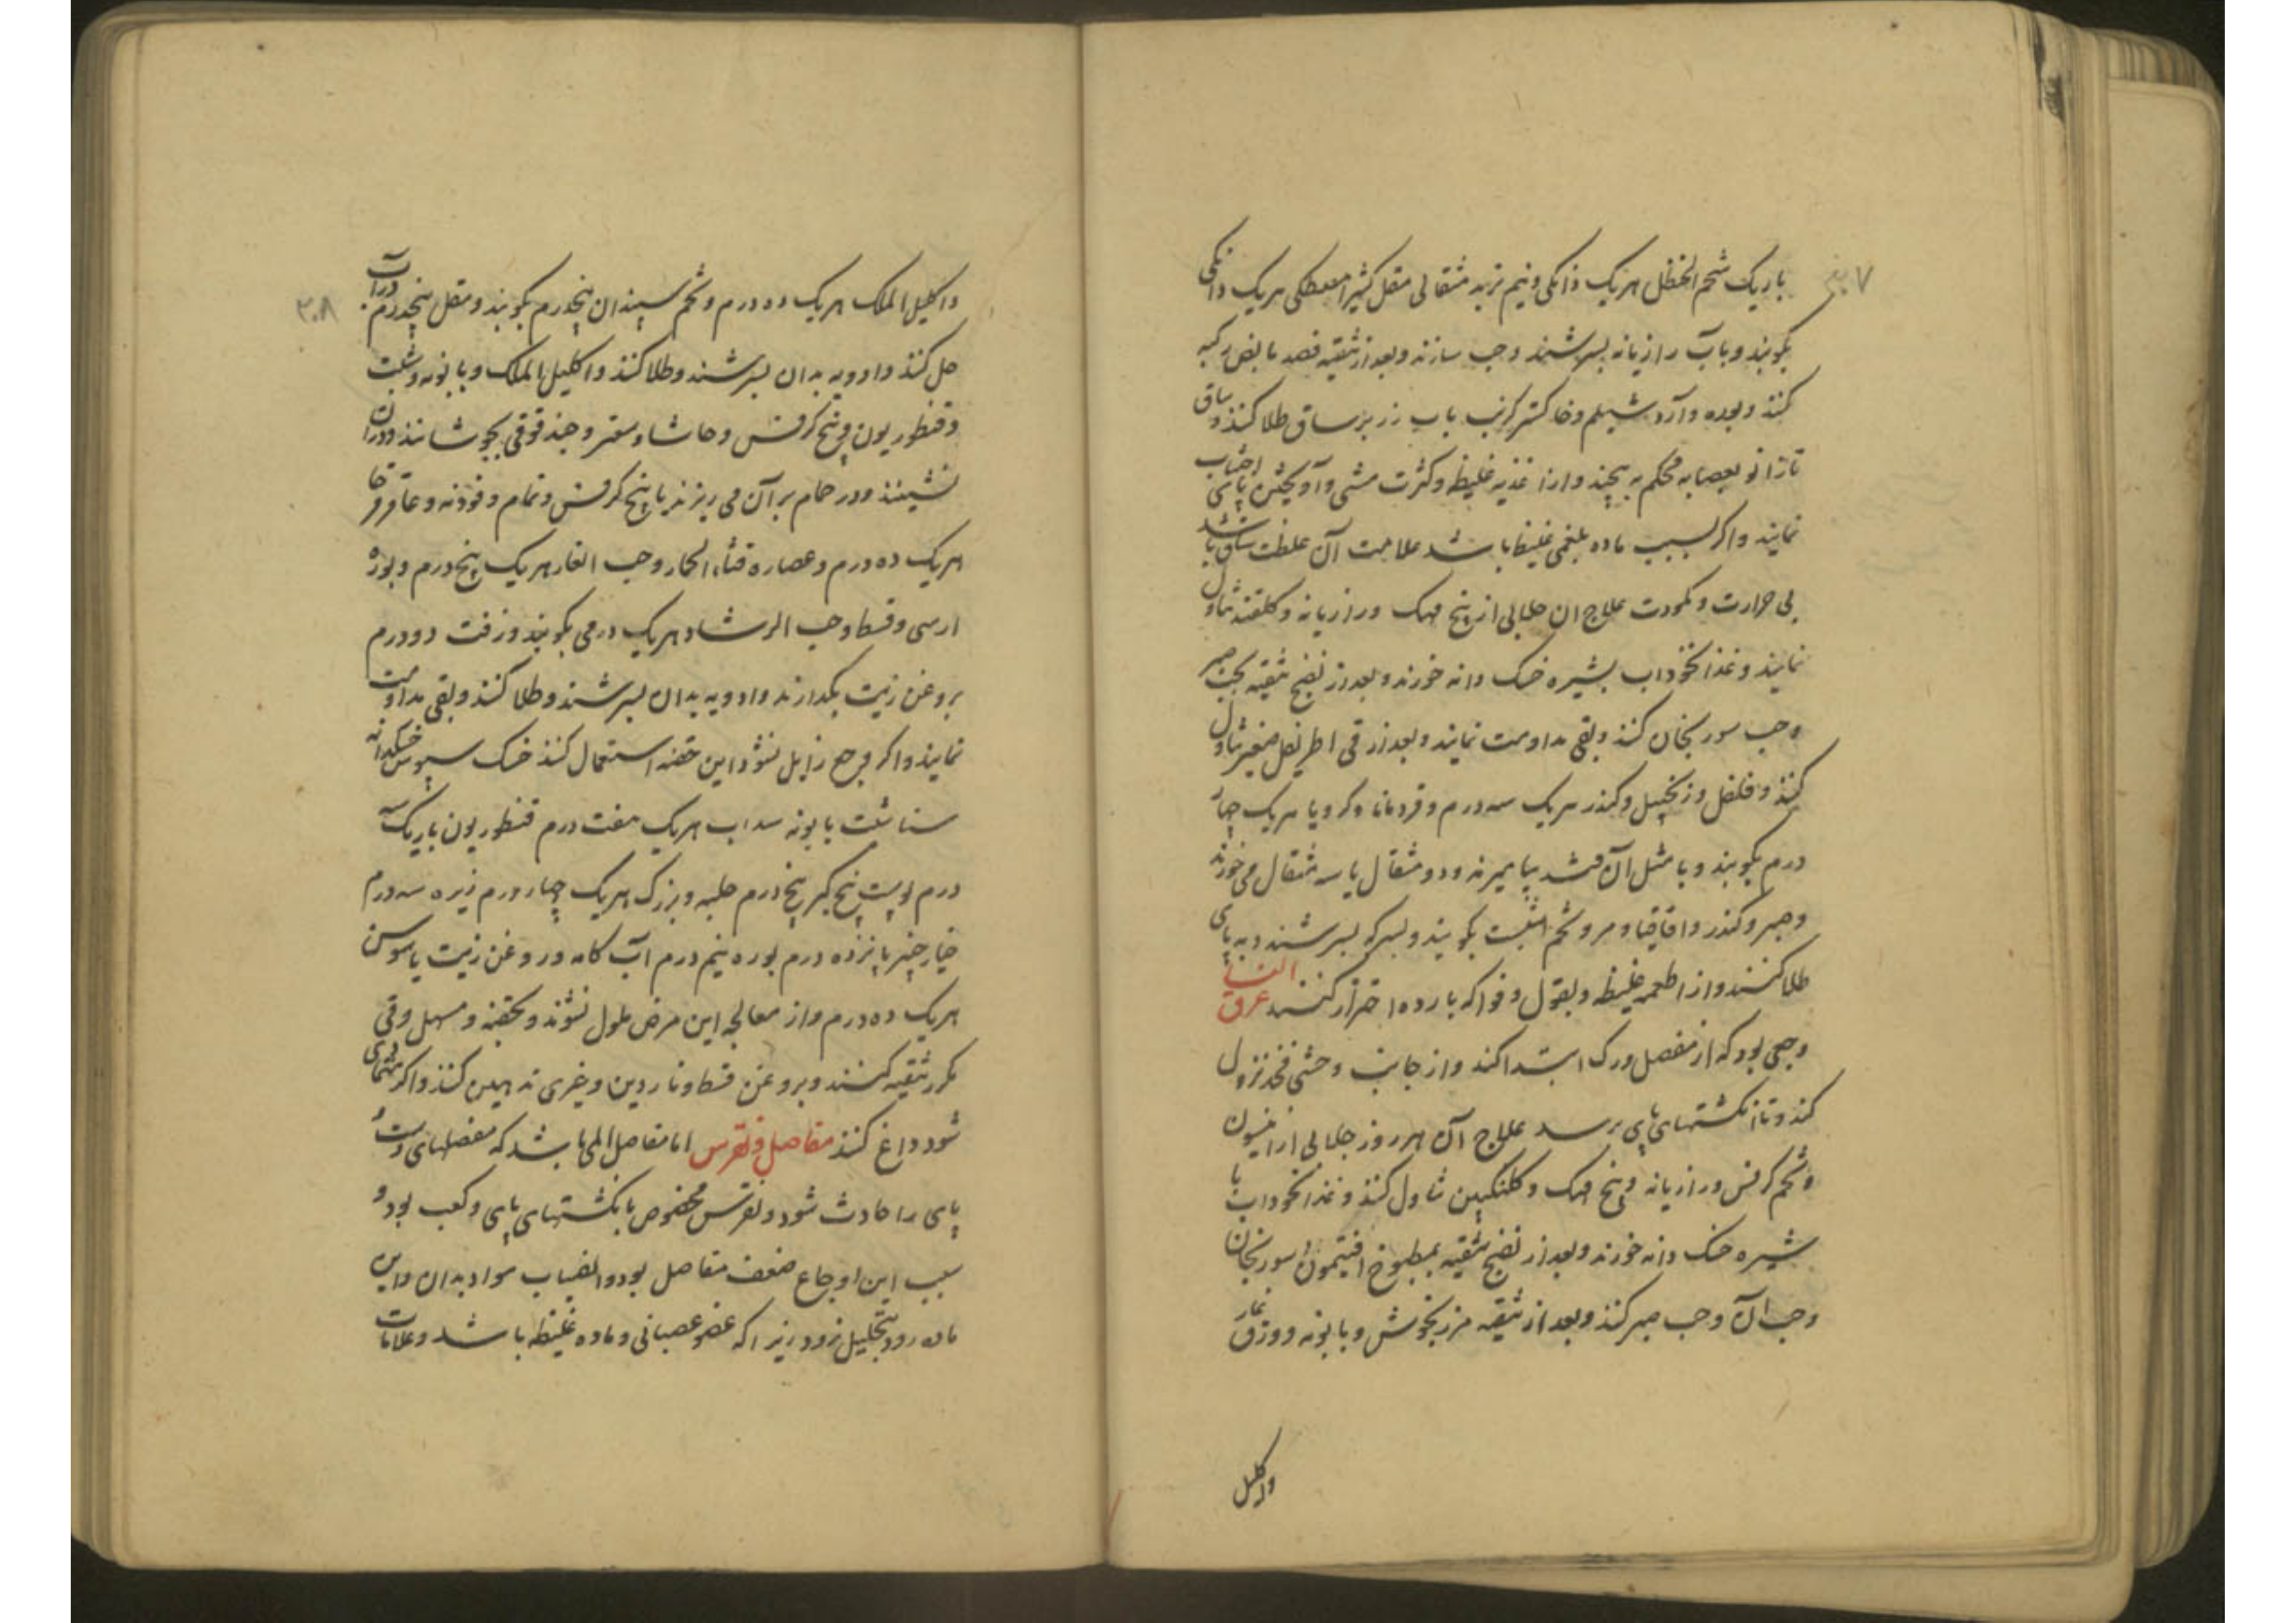 ۳۰۷
باریک شحم الحنظل هریک دانکی و نیم تربد مثقالی مقل کثیرا مصطکی هریک دانکی
بکوبند و بآب رازیانه بسرشند و حب سازند و بعد از تنقیه فصد مابض رکبه
کنند و بوره و آرد شیلم و خاکستر کرنب باب رز بر ساق طلا کنند و ساق
تا زانو بعصابه محکم به پیچند و از اغذیه غلیظ و کثرت مشی و آویختن پای اجتناب
نمایند و اکر بسبب ماده بلغمی غلیظ باشد علامت آن غلظت ساق باشد
بی حرارت و کمودت علاج ان جلابی از بیخ مهک و رازیانه و کلقند تناول
نمایند و غذا نخوداب بشیره خسک دانه خورند و بعد از نضج تنقیه بحب صبر
و حب سورنجان کنند و بقی مداومت نمایند و بعد از قی اطریفل صغیر تناول
کنند و فلفل و زنجبیل و کندر هریک سه درم و قردمانا و کرویا هریک چهار
درم بکوبند و با مثل آن قند بیامیزند و دو مثقال یا سه مثقال می خورند
و صبر و کندر و اقاقیا و مر و تخم شبت بکوبند و بسرکه بسرشند و به پای
طلا کنند و از اطعمه غلیظه و بقول و فواکه بارده احتراز کنند عرق النسا
وجعی بود که از مفصل ورک ابتدا کند و از جانب وحشی فخذ نزول
کند و تا انکشتهای پای برسد علاج آن هر روز جلابی از انیسون
و تخم کرفس و رازیانه و بیخ مهک و کلنکبین تناول کنند و غذا نخوداب با
شیره خسک دانه خورند و بعد از نضج تنقیه بمطبوخ افتیمون و سورنجان
و حب آن و حب صبر کنند و بعد از تنقیه مرزنجوش و بابونه و ورق غار
واکلیل
۳۰۸
واکلیل الملک هریک ده درم و تخم سپندان پنجدرم بکوبند و مقل پنجدرم در آب
حل کنند و ادویه بدان بسرشند و طلا کنند و اکلیل الملک و بابونه و شبت
و قنطوریون و بیخ کرفس و حاشا و سعتر و حندقوقی بجوشانند و در ان
نشینند و در حمام بر آن می ریزند یا بیخ کرفس و نمام و فودنه و عاقرقرحا
هریک ده درم و عصاره قثاء الحمار و حب الغار هریک پنج درم و بوره
ارمنی و قسط و حب الرشاد هریک درمی بکوبند و زفت دو درم
بروغن زیت بکدازند و ادویه بدان بسرشند و طلا کنند و بقی مداومت
نمایند و اکر وجع زایل نشود این حقنه استعمال کنند خسک سپوس خسکدانه
سنا شبت بابونه سداب هریک هفت درم قنطوریون باریک
درم پوست بیخ کبر پنج درم حلبه و بزرک هریک چهار درم زیره سه درم
خیار چنبر پانزده درم بوره نیم درم آب کامه و روغن زیت یا سوسن
هریک ده درم و از معالجه این مرض ملول نشوند و بحقنه و مسهل و قی
مکرر تنقیه کنند و بروغن قسط و ناردین و غیری تدهین کنند و اکر
شود داغ کنند مفاصل و نقرس اما مفاصل المی باشد که مفصلهای دست و
پای را حادث شود و نقرس مخصوص بانکشتهای پای و کعب بود و
سبب این اوجاع ضعف مفاصل بود و انصباب مواد بدان و این
ماده زود بتحلیل نرود زیرا که عضو عصبانی و ماده غلیظ باشد و علامات